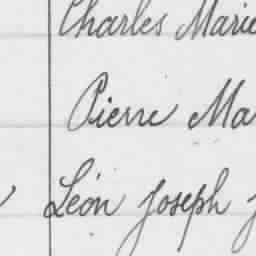 Charles Marie
Pierre Ma
Léon Joseph J